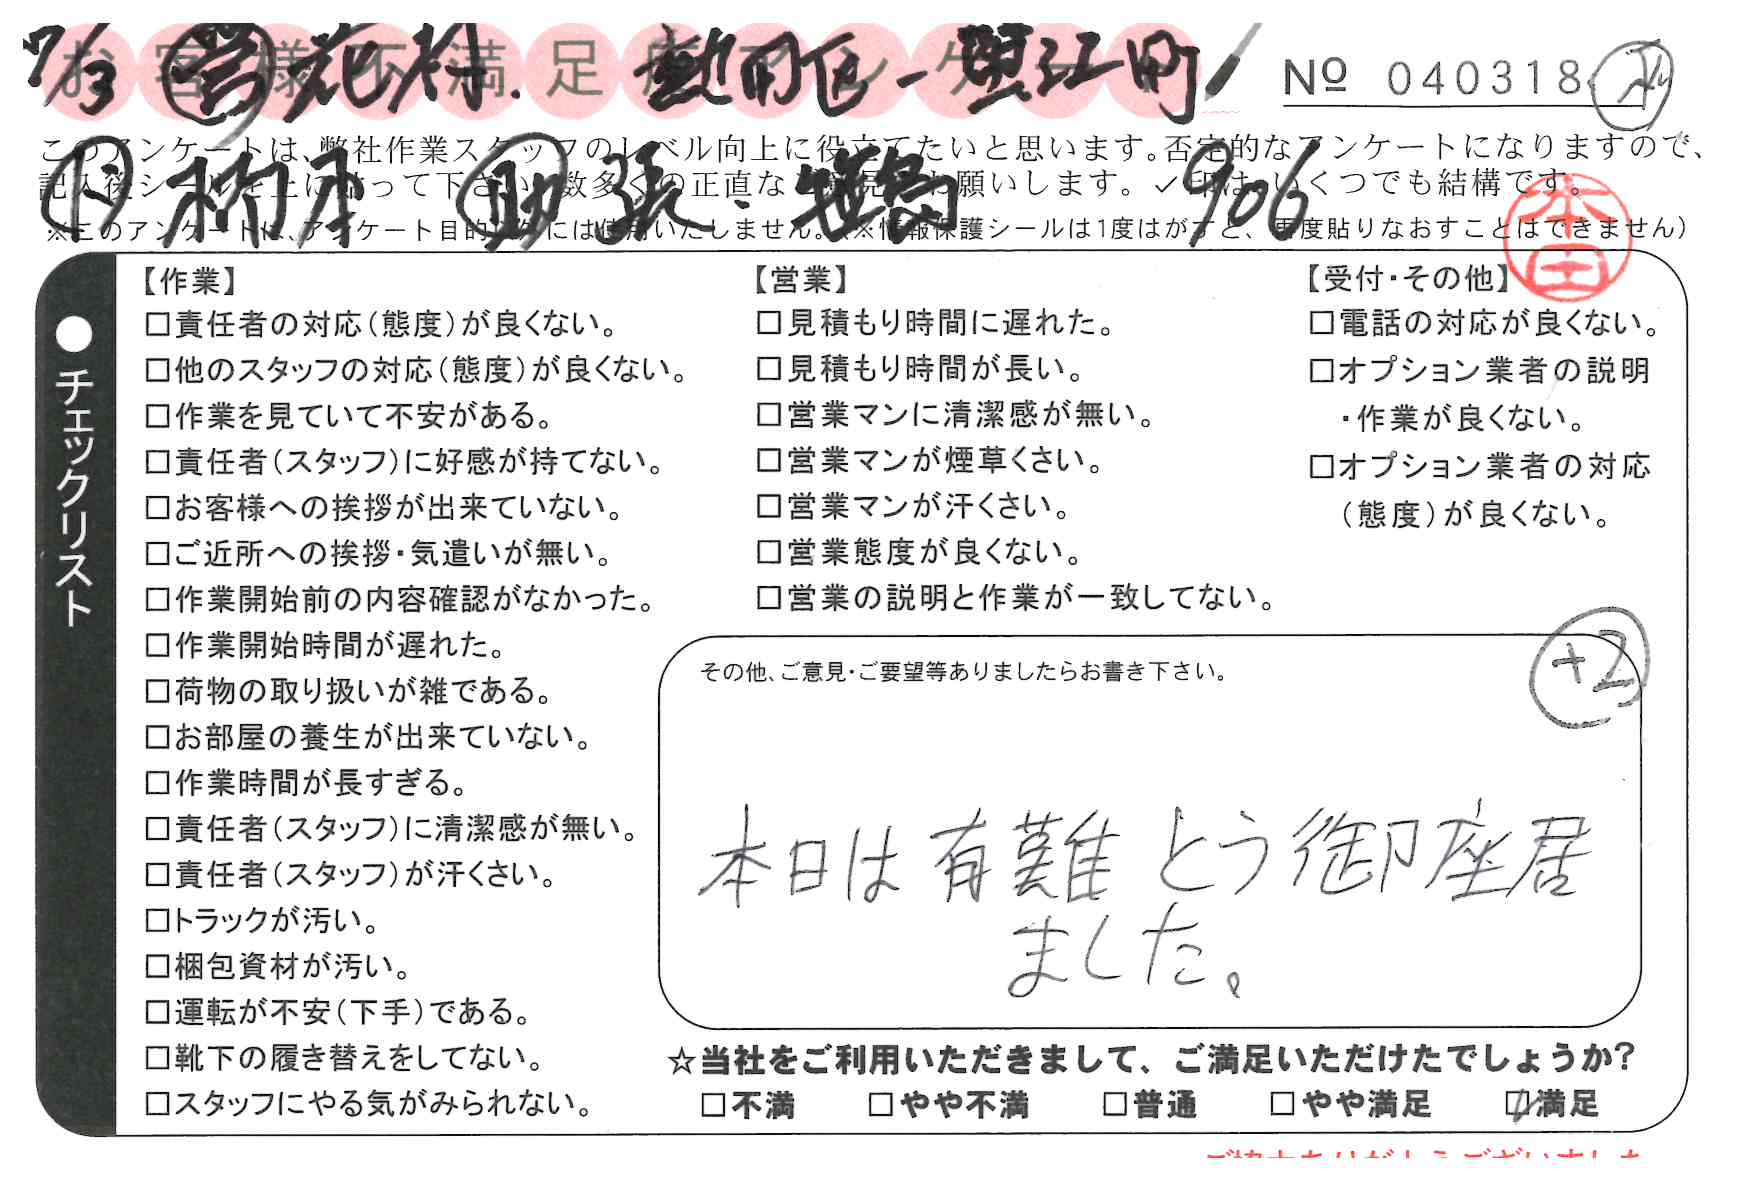 7/3 営 花村. 熱田区-蟹江町
お客様不満足度アンケート
№ 040318
このアンケートは、弊社作業スタッフのレベル向上に役立てたいと思います。否定的なアンケートになりますので、
記入後シールを上に貼って下さい。数多くの正直なご意見をお願いします。✓印は、いくつでも結構です。
906
※このアンケートは、アンケート目的以外には使用いたしません。(※情報保護シールは1度はがすと、再度貼りなおすことはできません)
本田
●チェックリスト
【作業】
□責任者の対応(態度)が良くない。
□他のスタッフの対応(態度)が良くない。
□作業を見ていて不安がある。
□責任者(スタッフ)に好感が持てない。
□お客様への挨拶が出来ていない。
□ご近所への挨拶・気遣いが無い。
□作業開始前の内容確認がなかった。
□作業開始時間が遅れた。
□荷物の取り扱いが雑である。
□お部屋の養生が出来ていない。
□作業時間が長すぎる。
□責任者(スタッフ)に清潔感が無い。
□責任者(スタッフ)が汗くさい。
□トラックが汚い。
□梱包資材が汚い。
□運転が不安(下手)である。
□靴下の履き替えをしてない。
□スタッフにやる気がみられない。
【営業】
□見積もり時間に遅れた。
□見積もり時間が長い。
□営業マンに清潔感が無い。
□営業マンが煙草くさい。
□営業マンが汗くさい。
□営業態度が良くない。
□営業の説明と作業が一致してない。
【受付・その他】
□電話の対応が良くない。
□オプション業者の説明
・作業が良くない。
□オプション業者の対応
(態度)が良くない。
+2
その他、ご意見・ご要望等ありましたらお書き下さい。
本日は有難とう御座居
ました。
☆当社をご利用いただきまして、ご満足いただけたでしょうか?
□不満 □やや不満 □普通 □やや満足 ☑満足
ご協力ありがとうございました